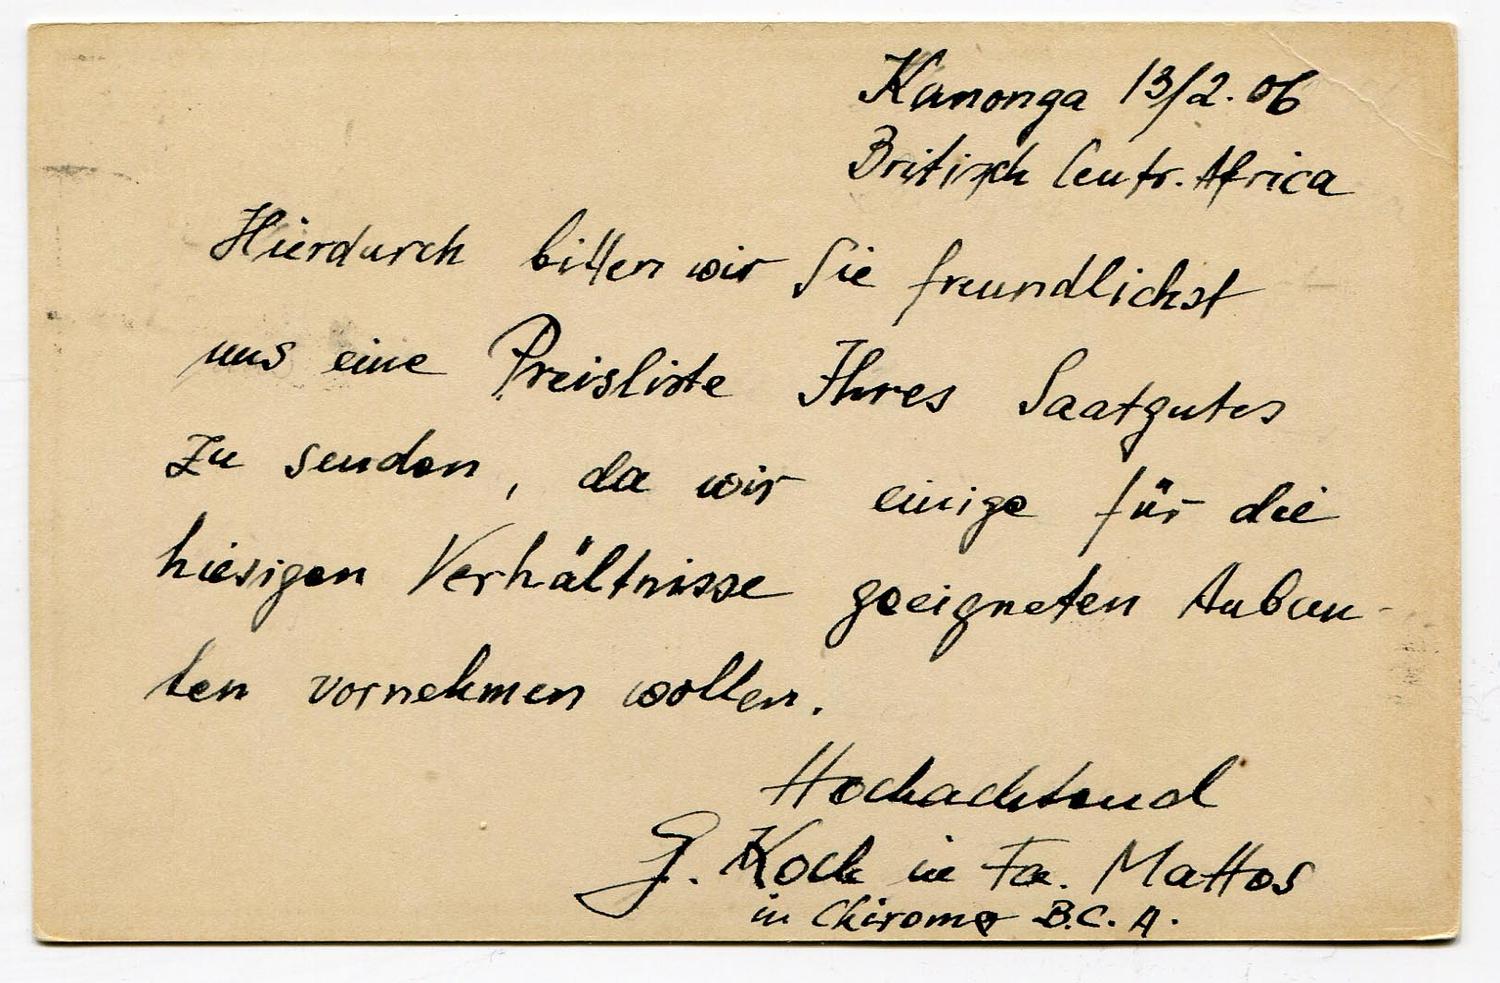 Kanonga 13/2. 06
Britisch Centr. Africa
Hierdurch bitten wir Sie freundlichst
uns eine Preisliste Ihres Saatgutes
zu senden, da wir einige für die
hiesigen Verhältnisse geeigneten Anbau-
ten vornehmen wollen.
Hochachtend
G. Koch in Fa. Mattos
in Chiromo B.C.A.